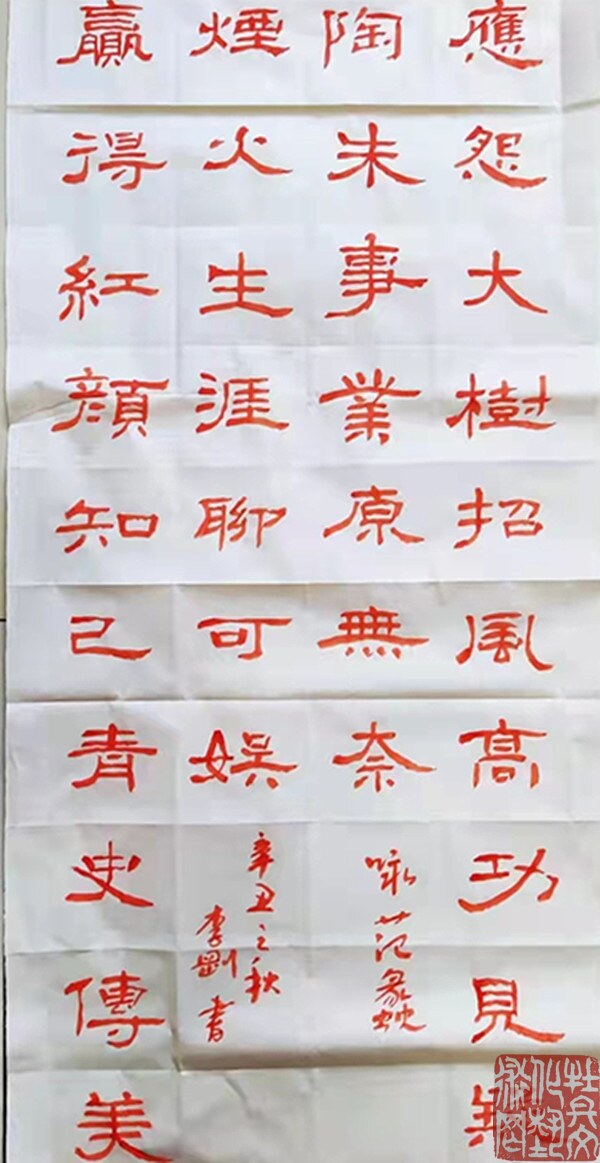 應怨大樹招風高功見
陶朱事業原無奈
咏范蠡
煙火生涯聊可娛
辛丑之秋
李剛書
贏得紅顏知己青史傳美